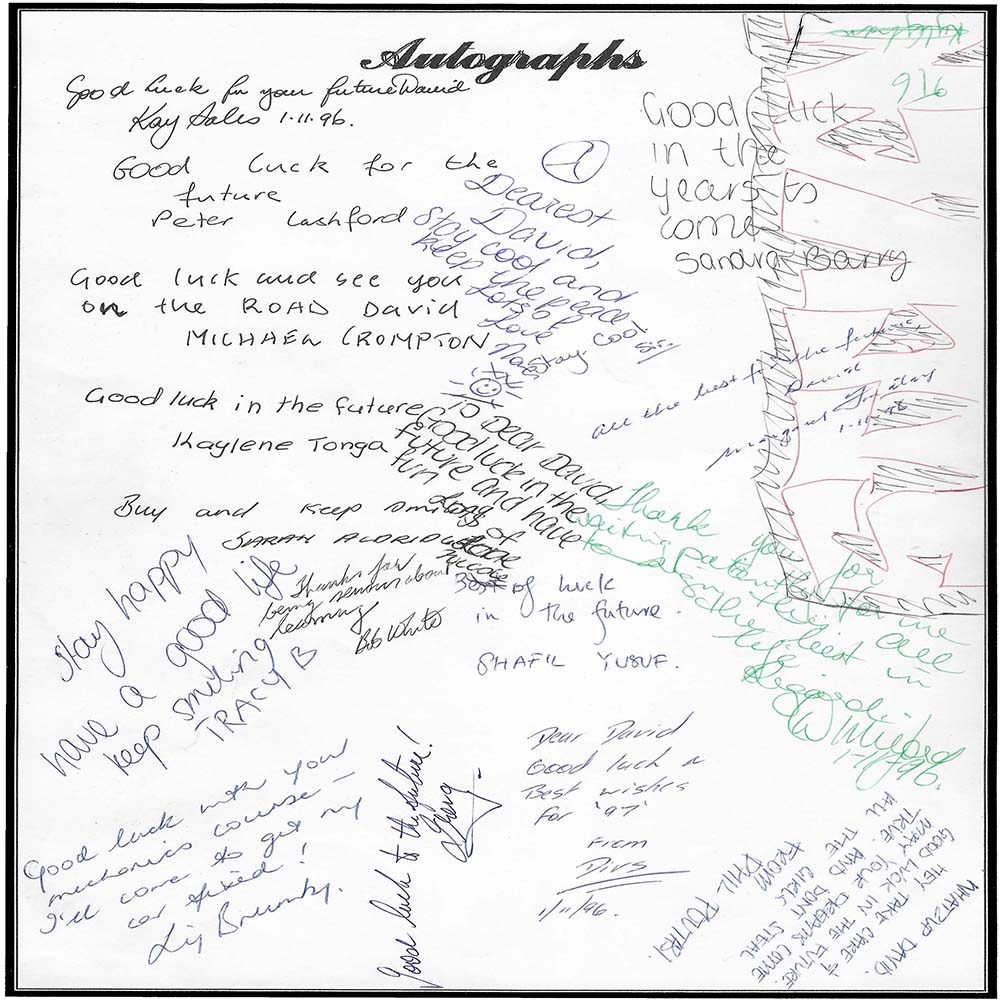 Autographs
Good luck for your future David
Kay Sales 1.11.96.
Good luck for the
future
Peter Lashford
Good luck and see you
on the ROAD David
MICHAEL CROMPTON
Good luck in the future
Kaylene Tonga
Buy and keep smiling
SARAH
Dearest
David,
Stay cool and
keep the peace
Lots of
Love
Stay cool
sir!
916
Good luck
in the
years to
come
Sandra Barry
all the best for the future
David
1.11.96
To DEAR DAVID
Good luck in the
future and have
fun
Long
of
love
Thank you for
waiting patiently for me
to sign this
all the best in
life
Regards
W Mitford
1/11/96.
Thanks for
being serious about
learning
Bob White
Best of luck
in the future.
SHAFIL YUSUF.
Stay happy
have a good life
keep smiling
TRACY B
Good luck with your
mechanics course –
I'll come to get my
car fixed!
Good luck to the future!
Dear David
Good luck n
Best wishes
for '97
From
Divs
1/11/96.
WHATZUP DAVID.
HEY TAKE CARE &
GOOD LUCK IN THE FUTURE.
MAY YOUR DREAMS COME
TRUE. AND DONT STEAL
ALL THE GIRLZ
FROM
PHIL POUTASI